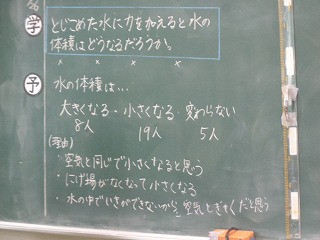 学 とじこめた水に力を加えると水の
体積はどうなるだろうか。
x x x x
予 水の体積は…
大きくなる・小さくなる・変わらない
8人 19人 5人
(理由)
・空気と同じで小さくなると思う
・にげ場がなくなって小さくなる
・水の中でいきができないから空気とぎゃくだと思う